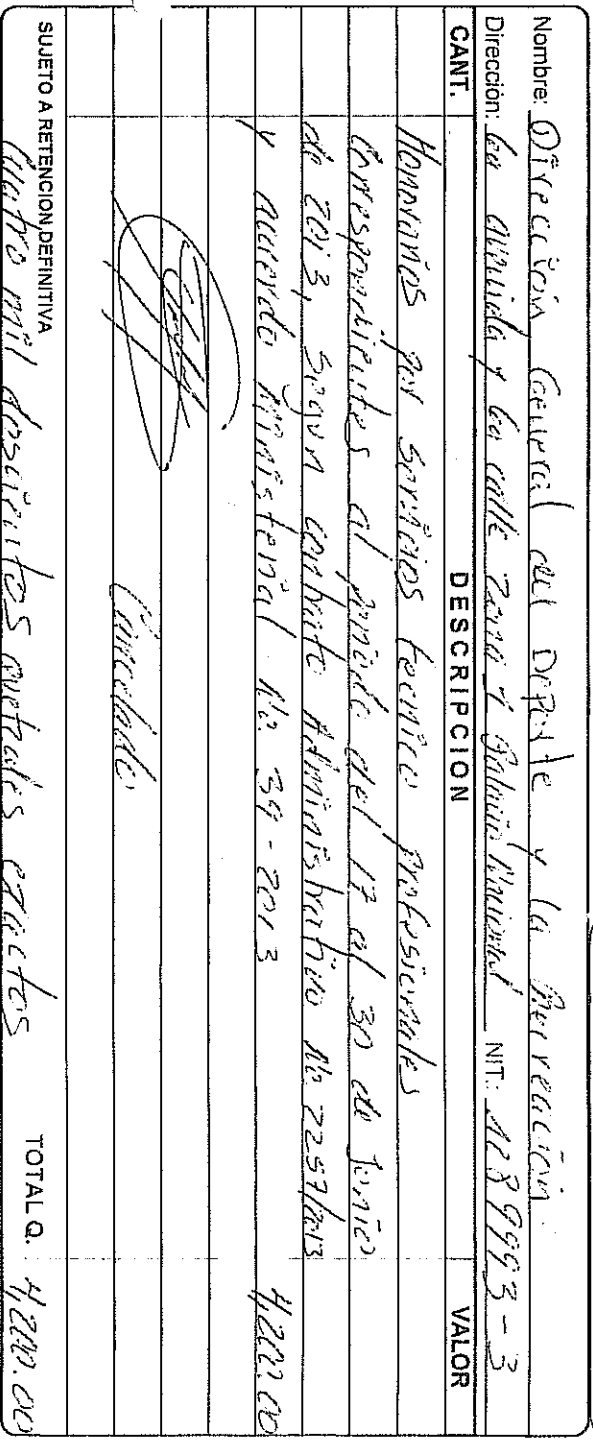 Nombre: Dirección General del Deporte y la Recreación.
Dirección: 6a avenida y 6a calle zona 1 Palacio Nacional NIT.: 1289993-3
CANT. DESCRIPCION VALOR
Honorarios por servicios tecnico profesionales
Correspondientes al periodo del 17 al 30 de Junio
de 2013, Según contrato Administrativo No. 2257/2013
y acuerdo Ministerial No. 39-2013 4,200.00
Cancelado
SUJETO A RETENCION DEFINITIVA
Cuatro mil doscientos quetzales exactos TOTAL Q. 4,200.00